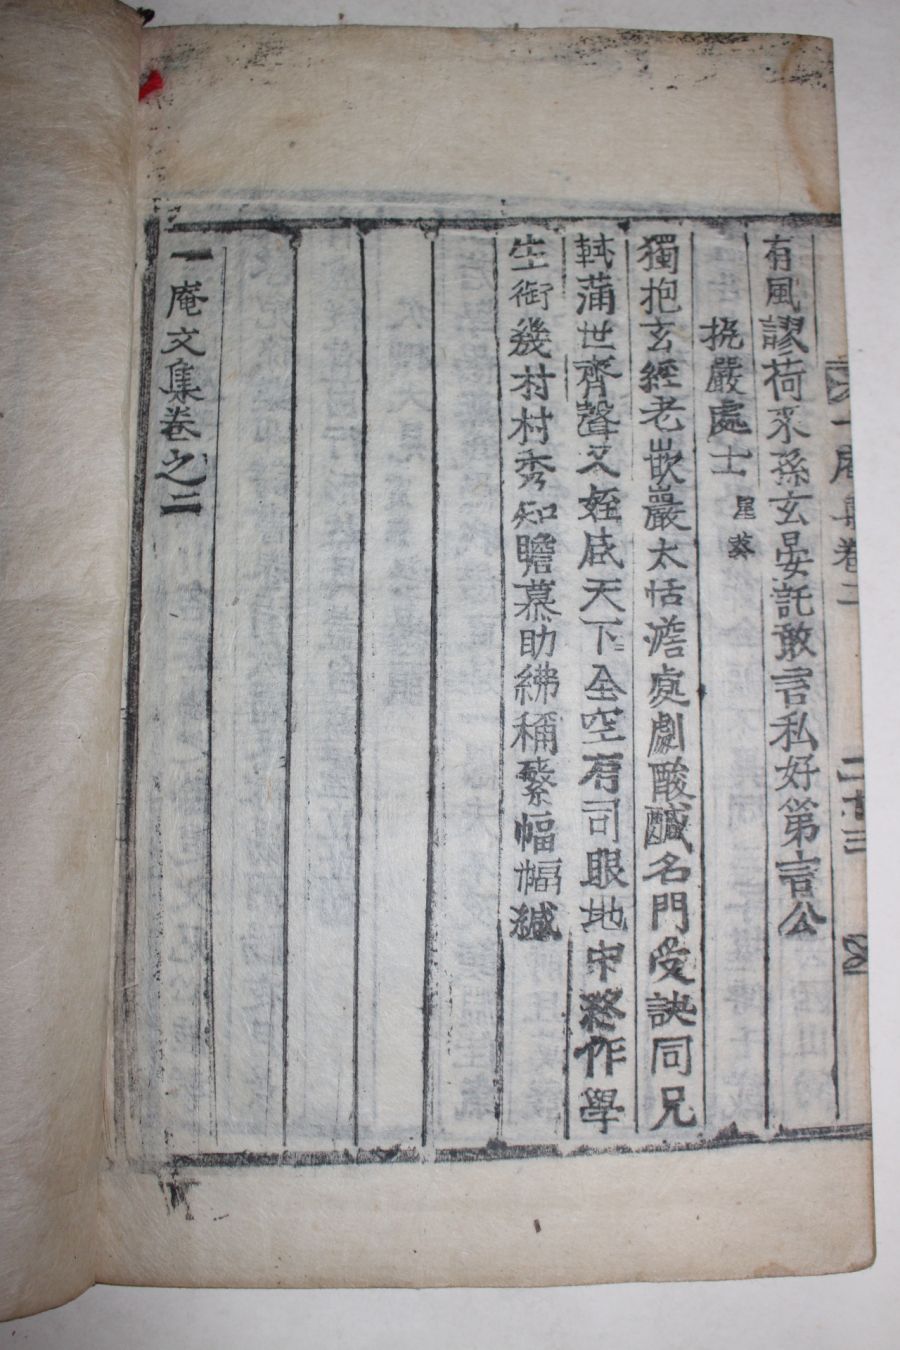 一庵集卷二 二十三
有風謬荷來孫玄晏託敢言私好第言公
挽嚴處士 星燦
獨抱玄經老嵌巖太恬澹處劇酸醎名門受訣同兄
軾蒲世齊聲又姪咸天下全空有司眼地中終作學
生銜幾村村秀知瞻慕助紼稱繄幅幅緘
一庵文集卷之二